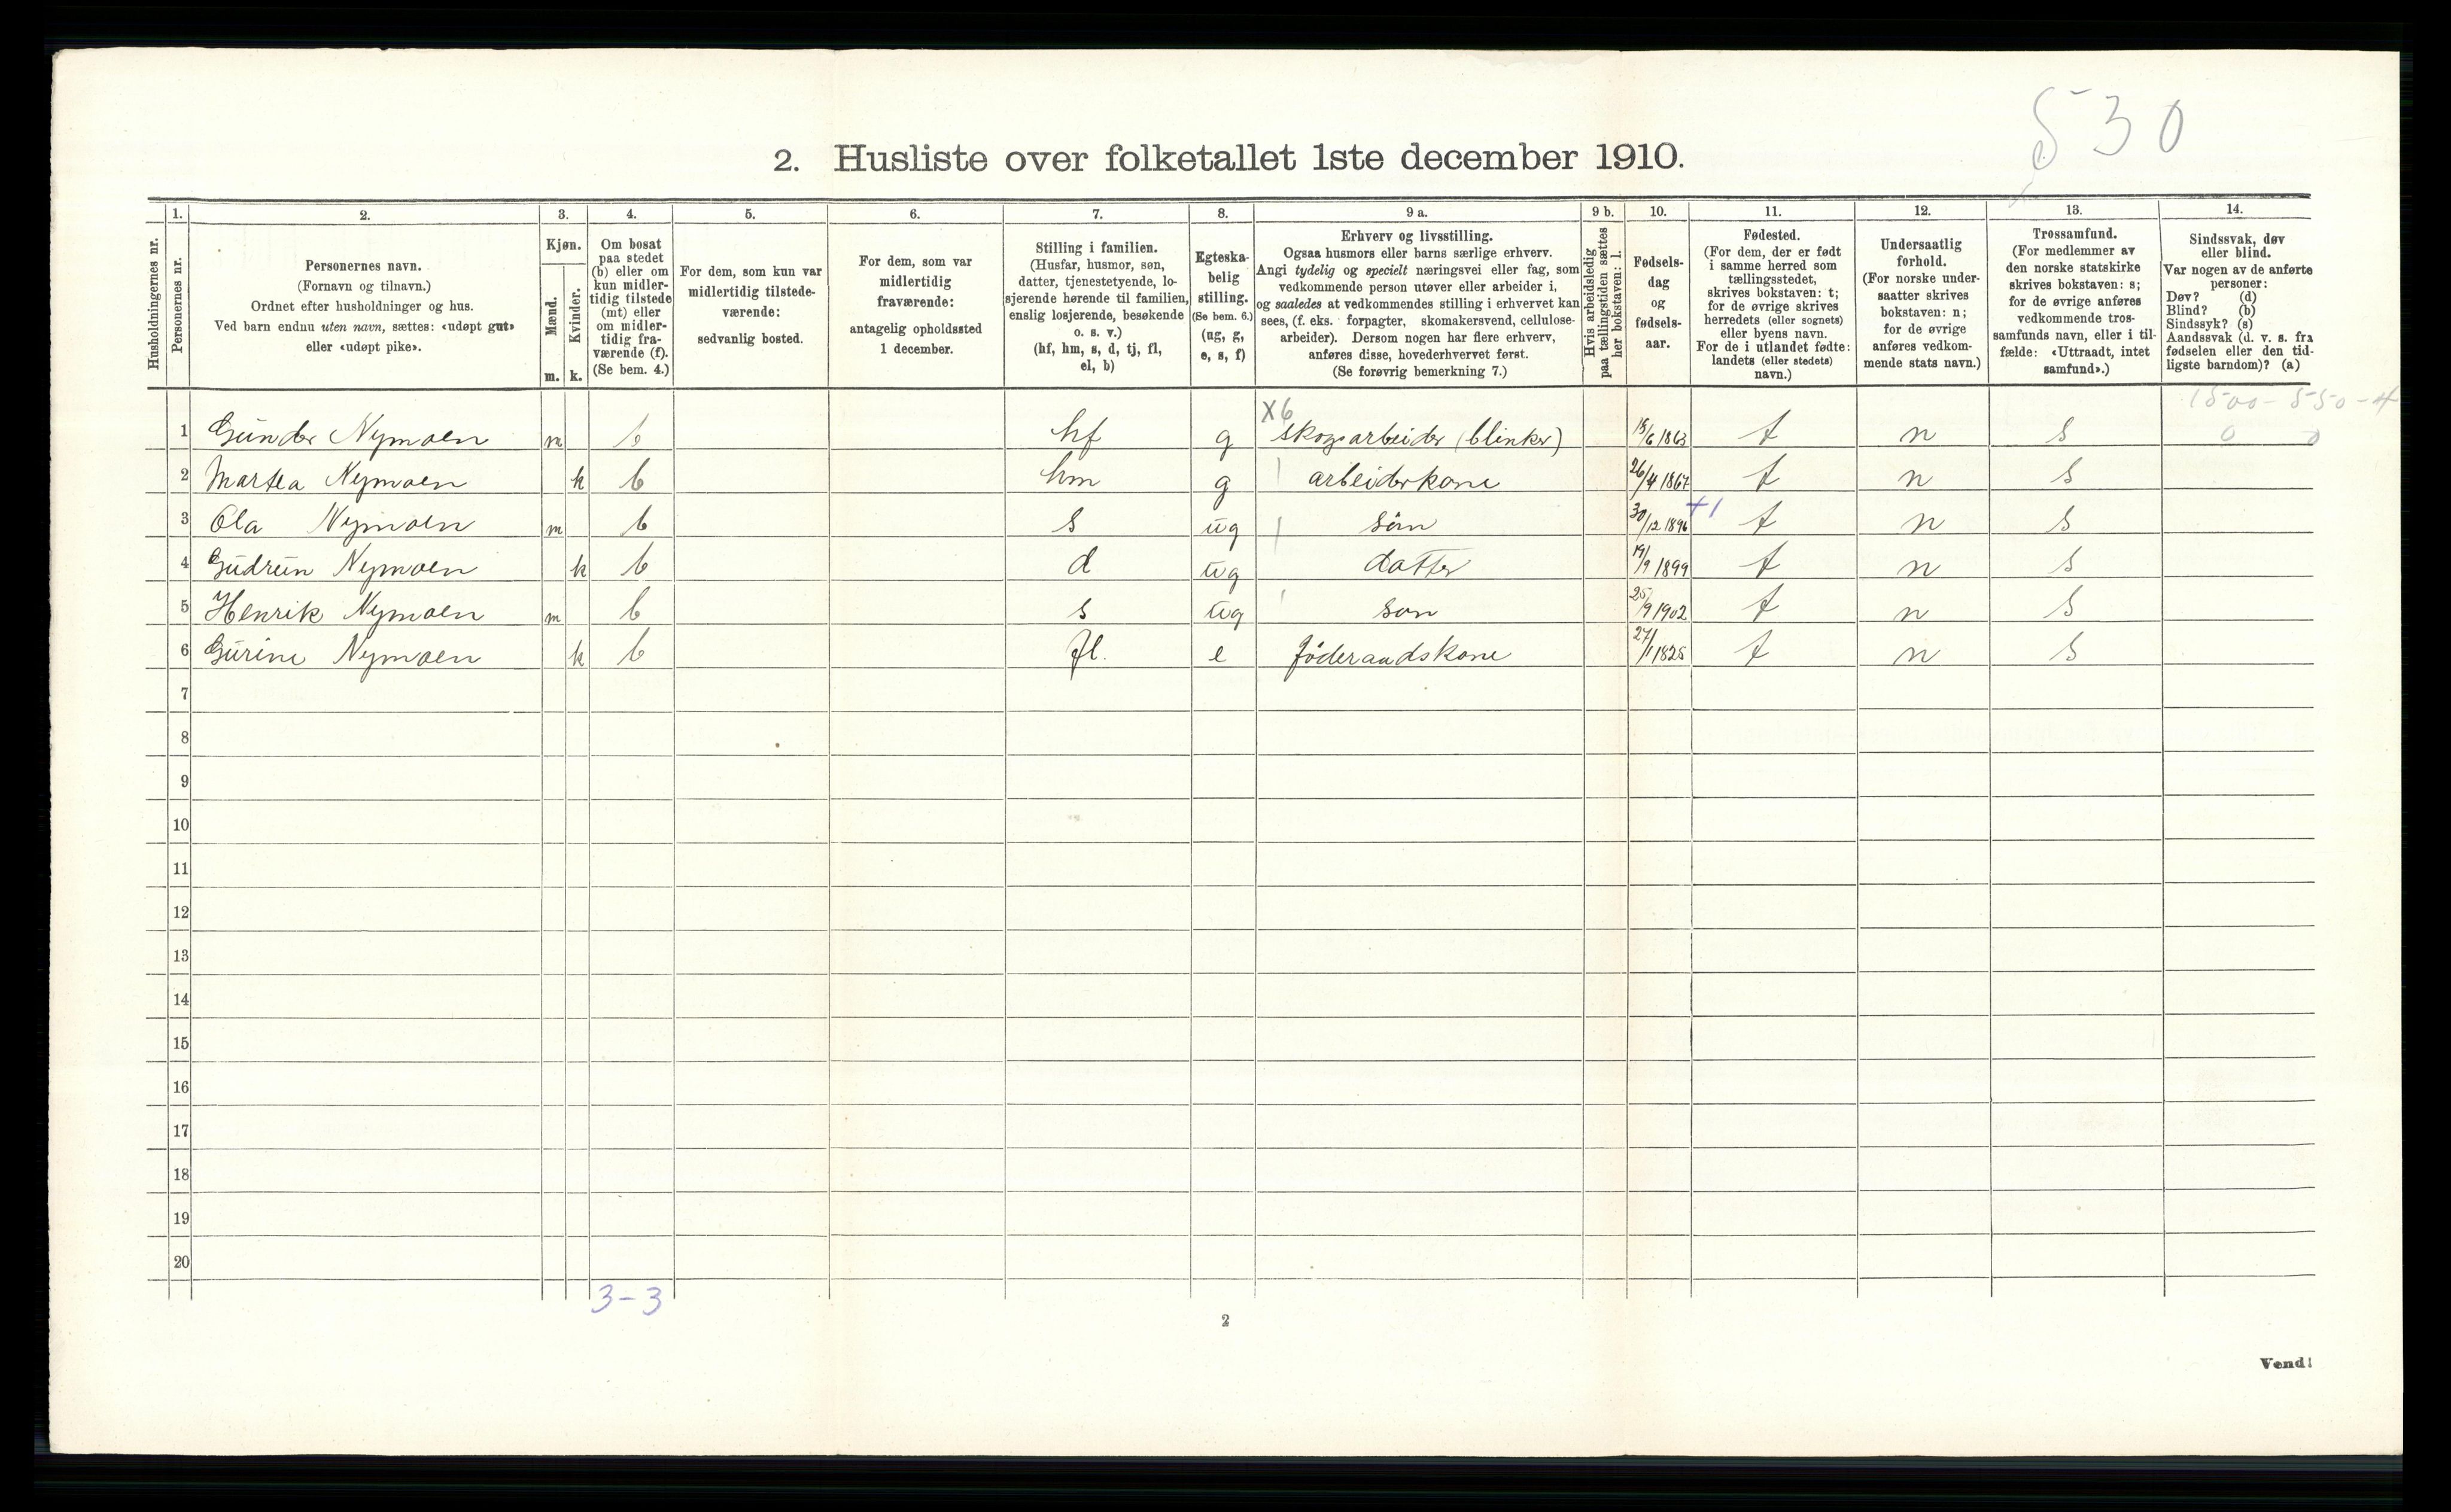 530
2. Husliste over folketallet 1ste december 1910.
1. 2. 3. 4. 5. 6. 7. 8. 9 a. 9 b. 10. 11. 12. 13. 14.
Husholdningernes nr.
Personernes nr.
Personernes navn.
(Fornavn og tilnavn.)
Ordnet efter husholdninger og hus.
Ved barn endnu uten navn, sættes: «udøpt gut»
eller «udøpt pike».
Kjøn.
Mænd.
Kvinder.
m. k.
Om bosat
paa stedet
(b) eller om
kun midler-
tidig tilstede
(mt) eller
om midler-
tidig fra-
værende (f).
(Se bem. 4.)
For dem, som kun var
midlertidig tilstede-
værende:
sedvanlig bosted.
For dem, som var
midlertidig
fraværende:
antagelig opholdssted
1 december.
Stilling i familien.
(Husfar, husmor, søn,
datter, tjenestetyende, lo-
sjerende hørende til familien,
enslig losjerende, besøkende
o. s. v.)
(hf, hm, s, d, tj, fl,
el, b)
Egteska-
belig
stilling.
(Se bem. 6.)
(ug, g,
e, s, f)
Erhverv og livsstilling.
Ogsaa husmors eller barns særlige erhverv.
Angi tydelig og specielt næringsvei eller fag, som
vedkommende person utøver eller arbeider i,
og saaledes at vedkommendes stilling i erhvervet kan
sees, (f. eks. forpagter, skomakersvend, cellulose-
arbeider). Dersom nogen har flere erhverv,
anføres disse, hovederhvervet først.
(Se forøvrig bemerkning 7.)
Hvis arbeidsledig
paa tællingstiden sættes
her bokstaven: l.
Fødsels-
dag
og
fødsels-
aar.
Fødested.
(For dem, der er født
i samme herred som
tællingsstedet,
skrives bokstaven: t;
for de øvrige skrives
herredets (eller sognets)
eller byens navn.
For de i utlandet fødte:
landets (eller stedets)
navn.)
Undersaatlig
forhold.
(For norske under-
saatter skrives
bokstaven: n;
for de øvrige
anføres vedkom-
mende stats navn.)
Trossamfund.
(For medlemmer av
den norske statskirke
skrives bokstaven: s;
for de øvrige anføres
vedkommende tros-
samfunds navn, eller i til-
fælde: «Uttraadt, intet
samfund».)
Sindssvak, døv
eller blind.
Var nogen av de anførte
personer:
Døv? (d)
Blind? (b)
Sindssyk? (s)
Aandssvak (d. v. s. fra
fødselen eller den tid-
ligste barndom)? (a)
X6 1500-550-4
1 Gunder Nymoen m b hf g skogsarbeider (blinker) 15/6 1863 t n s 0 0
2 Martea Nymoen k b hm g arbeiderkone 26/4 1867 t n s
3 Ola Nymoen m b s ug søn 30/12 1896 +1 t n s
4 Gudrun Nymoen k b d ug datter 19/9 1899 t n s
5 Henrik Nymoen m b s ug søn 25/9 1902 t n s
6 Gurine Nymoen k b fl. e føderaadskone 27/1 1825 t n s
7
8
9
10
11
12
13
14
15
16
17
18
19
20
3-3
2
Vend!